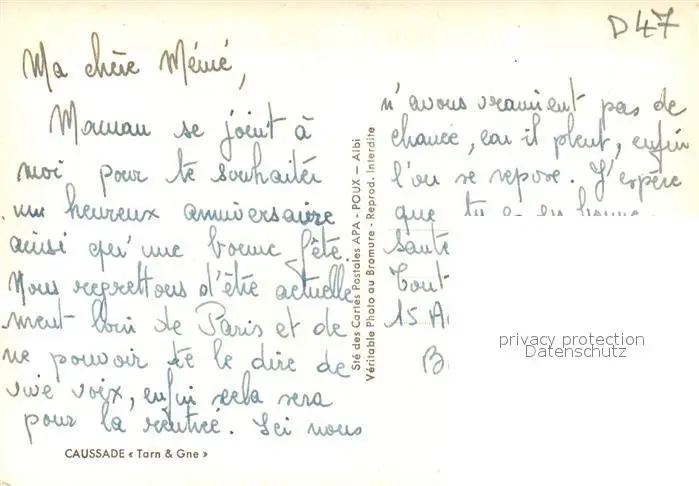 D47
Ma chère Mémé,
Maman se joint à
moi pour te souhaiter
un heureux anniversaire
ainsi qu'une bonne fête.
Nous regrettons d'être actuelle
ment loin de Paris et de
ne pouvoir te le dire de
vive voix, enfin cela sera
pour la rentrée. Ici nous
n'avons vraiment pas de
chance, car il pleut, enfin
l'on se repose. J'espère
que tu es en bonne
santé
Tout
15 A
B
CAUSSADE « Tarn & Gne »
Sté des Cartes Postales APA - POUX - Albi
Véritable Photo au Bromure - Reprod. Interdite
privacy protection
Datenschutz